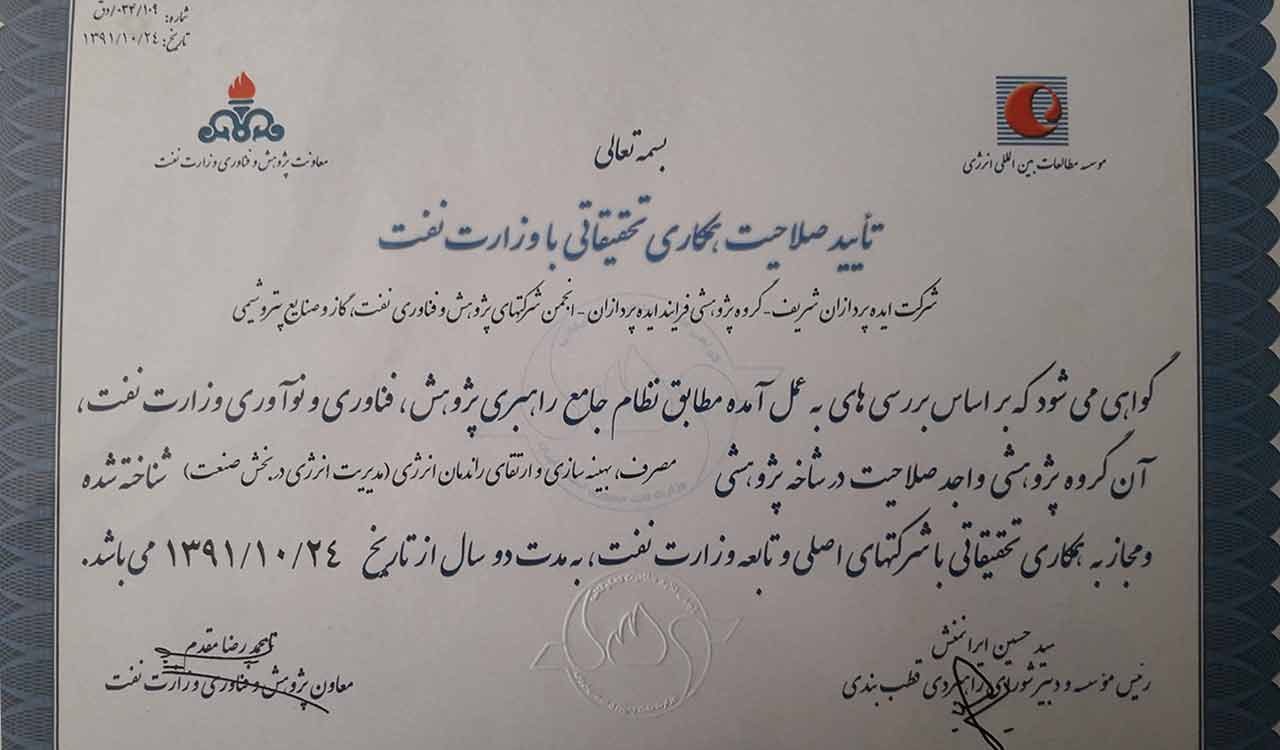 شماره: ۰۳۴/۱۰۹/دق
تاریخ: ۱۳۹۱/۱۰/۲۴
موسسه مطالعات بین المللی انرژی
معاونت پژوهش و فناوری وزارت نفت
بسمه تعالی
تأیید صلاحیت همکاری تحقیقاتی با وزارت نفت
شرکت ایده پردازان شریف - گروه پژوهشی فرایند ایده پردازان - انجمن شرکتهای پژوهش و فناوری نفت، گاز و صنایع پتروشیمی
گواهی می شود که بر اساس بررسی های به عمل آمده مطابق نظام جامع راهبری پژوهش، فناوری و نوآوری وزارت نفت،
آن گروه پژوهشی واجد صلاحیت در شاخه پژوهشی مصرف، بهینه سازی و ارتقای راندمان انرژی (مدیریت انرژی در بخش صنعت) شناخته شده
و مجاز به همکاری تحقیقاتی با شرکتهای اصلی و تابعه وزارت نفت، به مدت دو سال از تاریخ ۱۳۹۱/۱۰/۲۴ می باشد.
سید حسین ایرانمنش
رئیس مؤسسه و دبیر شورای راهبردی قطب بندی
محمد رضا مقدم
معاون پژوهش و فناوری وزارت نفت